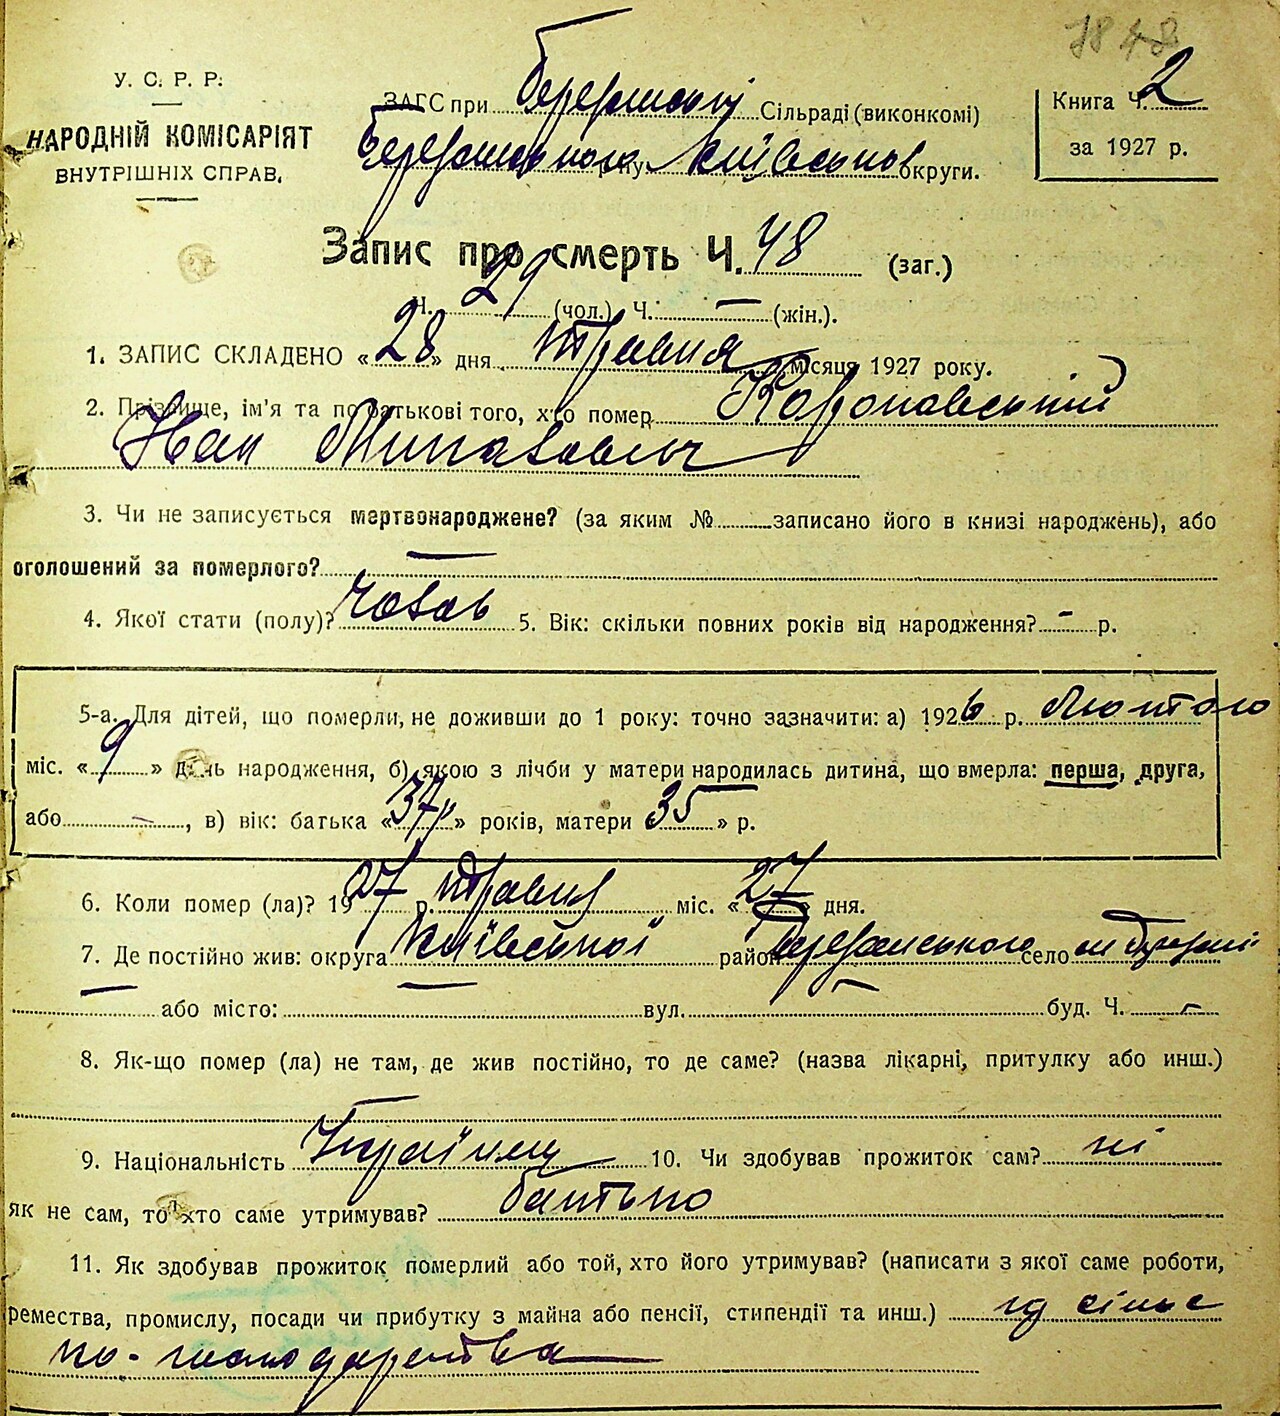 7848
У. С. Р. Р.
НАРОДНІЙ КОМІСАРІЯТ
ВНУТРІШНІХ СПРАВ.
ЗАГС при Сільраді (виконкомі)
Київської округи.
Книга Ч. 2
за 1927 р.
Запис про смерть Ч. 48 (заг.)
Ч. 29 (чол.) Ч. — (жін.).
1. ЗАПИС СКЛАДЕНО «28» дня травня місяця 1927 року.
2. Прізвище, ім'я та по батькові того, хто помер
Іван
3. Чи не записується мертвонароджене? (за яким № записано його в книзі народжень), або
оголошений за померлого? —
4. Якої стати (полу)? 5. Вік: скільки повних років від народження? - р.
5-а. Для дітей, що померли, не доживши до 1 року: точно зазначити: а) 1926 р. Лютого
міс. «9» день народження, б) якою з лічби у матери народилась дитина, що вмерла: перша, друга,
або —, в) вік: батька «37» років, матери 35» р.
6. Коли помер (ла)? 1927 р. травня міс. «27» дня.
7. Де постійно жив: округа Київської район село
— або місто: — вул. — буд. Ч. —
8. Як-що помер (ла) не там, де жив постійно, то де саме? (назва лікарні, притулку або инш.)
—
9. Національність 10. Чи здобував прожиток сам? ні
як не сам, то хто саме утримував? батько
11. Як здобував прожиток померлий або той, хто його утримував? (написати з якої саме роботи,
ремества, промислу, посади чи прибутку з майна або пенсії, стипендії та инш.) сільс
ко-господарства